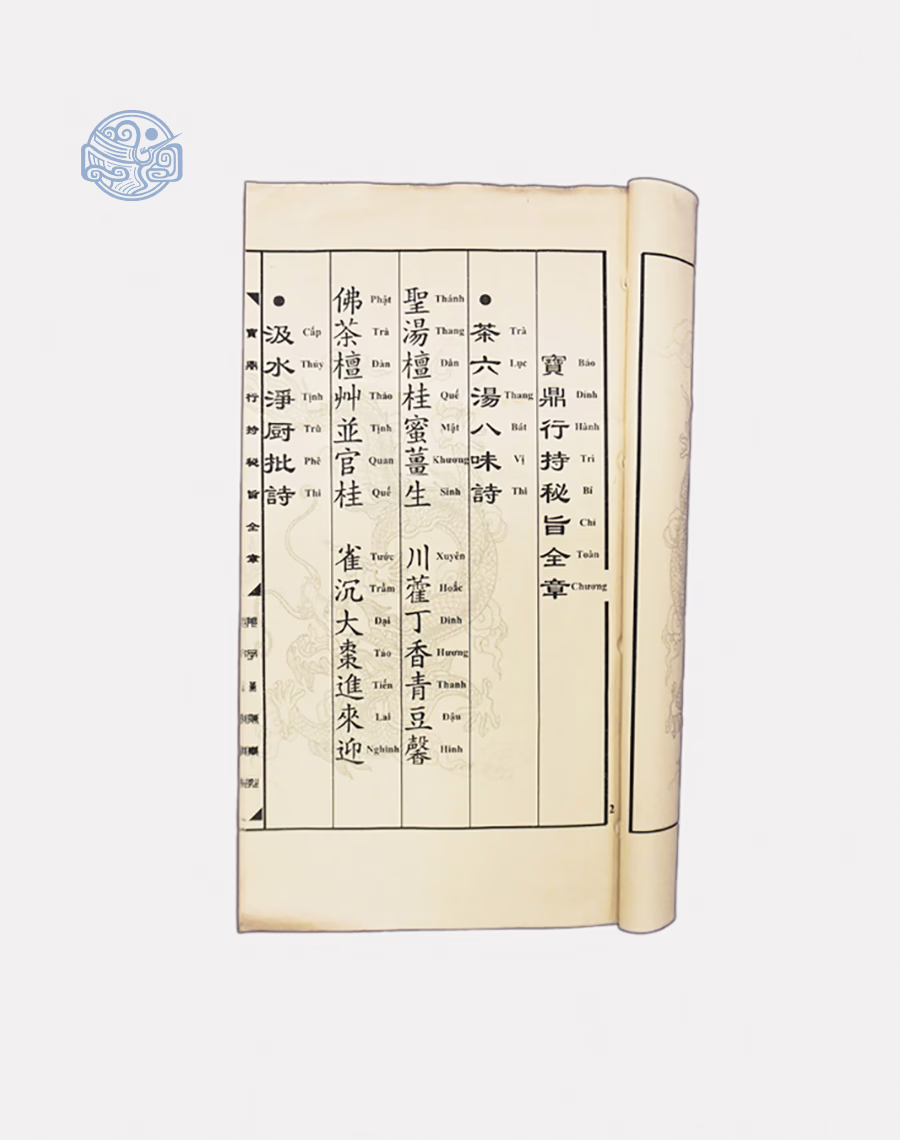 寶鼎行持秘旨全章
Bảo Đỉnh Hành Trì Bí Chỉ Toàn Chương
● 茶六湯八味詩
Trà Lục Thang Bát Vị Thi
聖湯檀桂蜜薑生 川藿丁香青豆馨
Thánh Thang Đàn Quế Mật Khương Sinh Xuyên Hoắc Đinh Hương Thanh Đậu Hinh
佛茶檀艸並官桂 雀沉大棗進來迎
Phật Trà Đàn Thảo Tịnh Quan Quế Tước Trầm Đại Táo Tiến Lai Nghinh
● 汲水淨厨批詩
Cấp Thủy Tịnh Trù Phê Thi
寶鼎行持秘旨全章
2